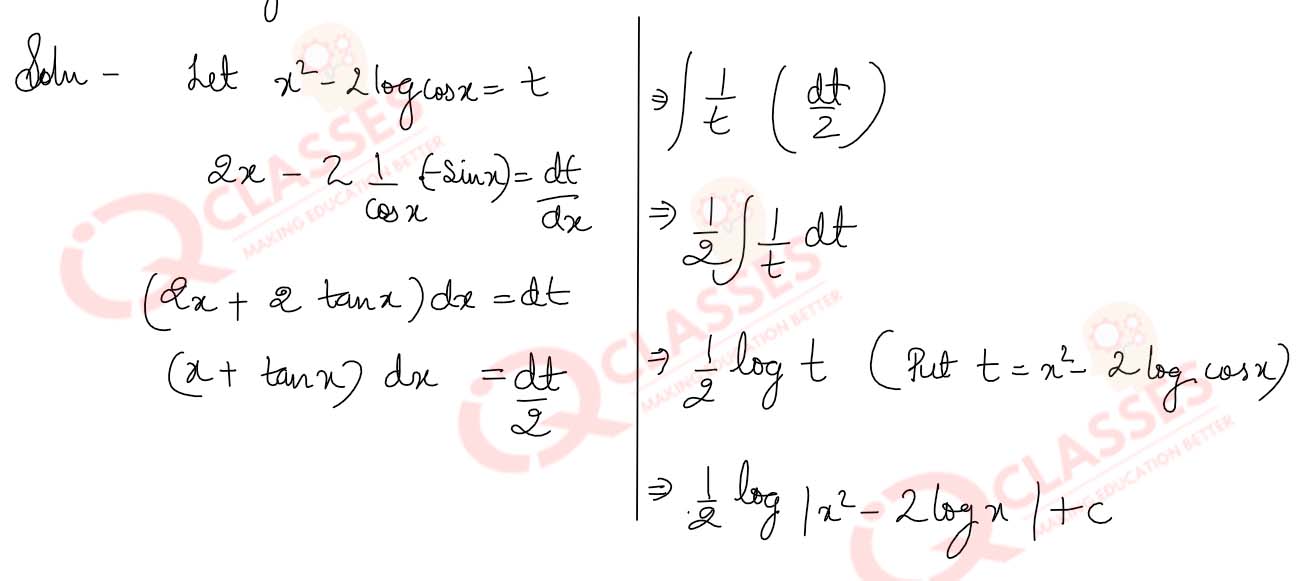 Soln - Let x² - 2 log cos x = t
2x - 2 1/cos x (-sin x) = dt/dx
(2x + 2 tan x) dx = dt
(x + tan x) dx = dt/2
⇒ ∫ 1/t (dt/2)
⇒ 1/2 ∫ 1/t dt
⇒ 1/2 log t (Put t = x² - 2 log cos x)
⇒ 1/2 log |x² - 2 log x| + c
IQ CLASSES
MAKING EDUCATION BETTER
IQ CLASSES
MAKING EDUCATION BETTER
IQ CLASSES
MAKING EDUCATION BETTER